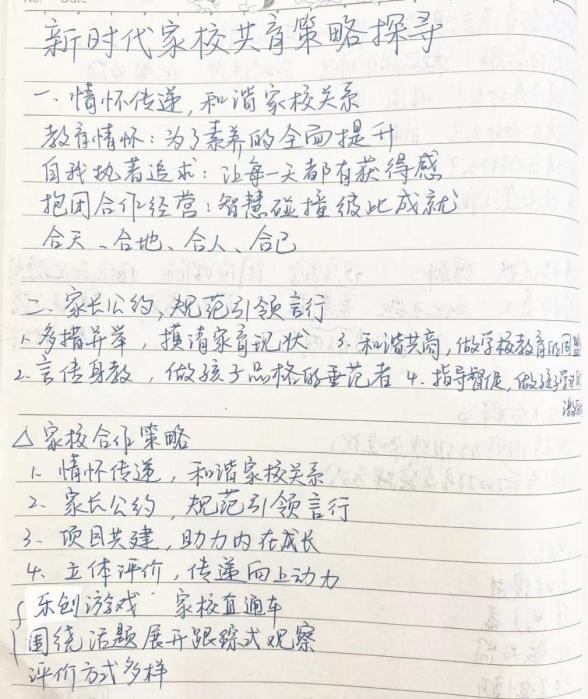 No: Date
新时代家校共育策略探寻
一、情怀传递，和谐家校关系
教育情怀：为了素养的全面提升
自我执著追求：让每一天都有获得感
抱团合作经营：智慧碰撞彼此成就
合天、合地、合人、合己
二、家长公约，规范引领言行
1、多措并举，摸清家育现状 3、和谐共商，做学校教育的同盟
2、言传身教，做孩子品格的垂范者 4、指导督促，做孩子学习的
△家校合作策略
1、情怀传递，和谐家校关系
2、家长公约，规范引领言行
3、项目共建，助力内在成长
4、立体评价，传递向上动力
乐创游戏 家校直通车
围绕话题展开跟踪式观察
评价方式多样